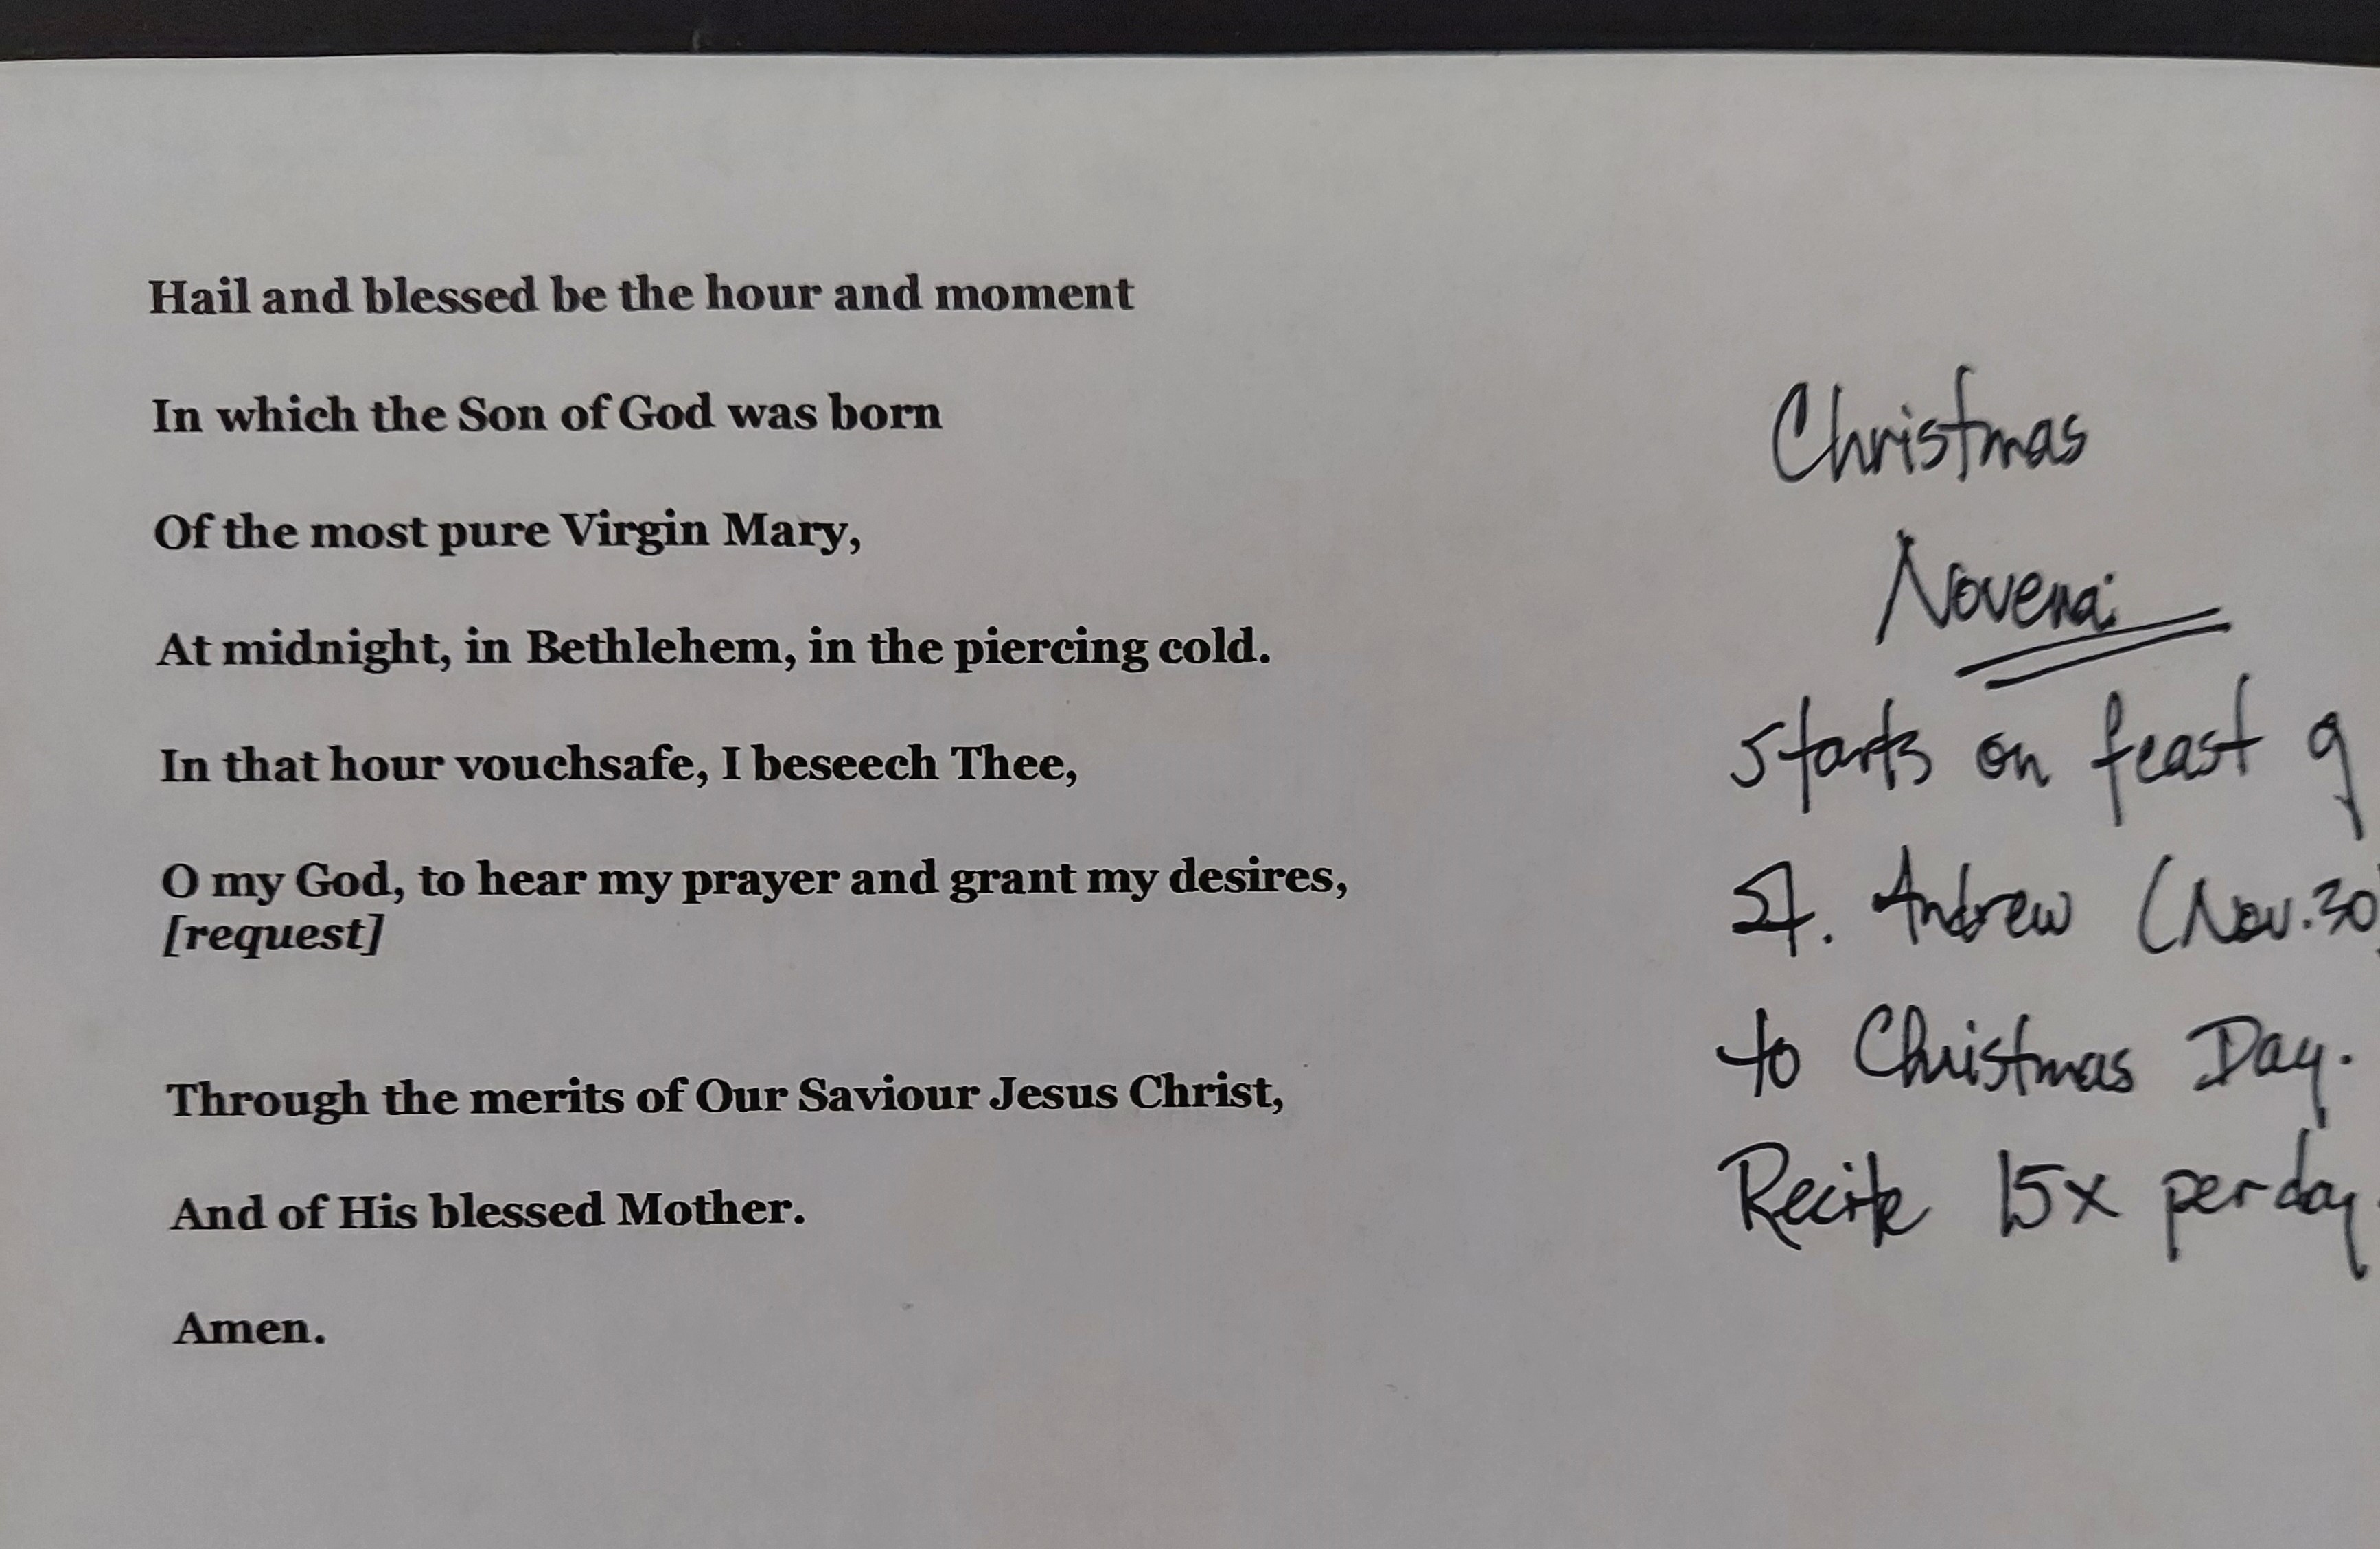 Hail and blessed be the hour and moment
In which the Son of God was born
Of the most pure Virgin Mary,
At midnight, in Bethlehem, in the piercing cold.
In that hour vouchsafe, I beseech Thee,
O my God, to hear my prayer and grant my desires,
[request]
Through the merits of Our Saviour Jesus Christ,
And of His blessed Mother.
Amen.
Christmas
Novena
starts on feast of
St. Andrew (Nov. 30)
to Christmas Day.
Recite 15x per day.